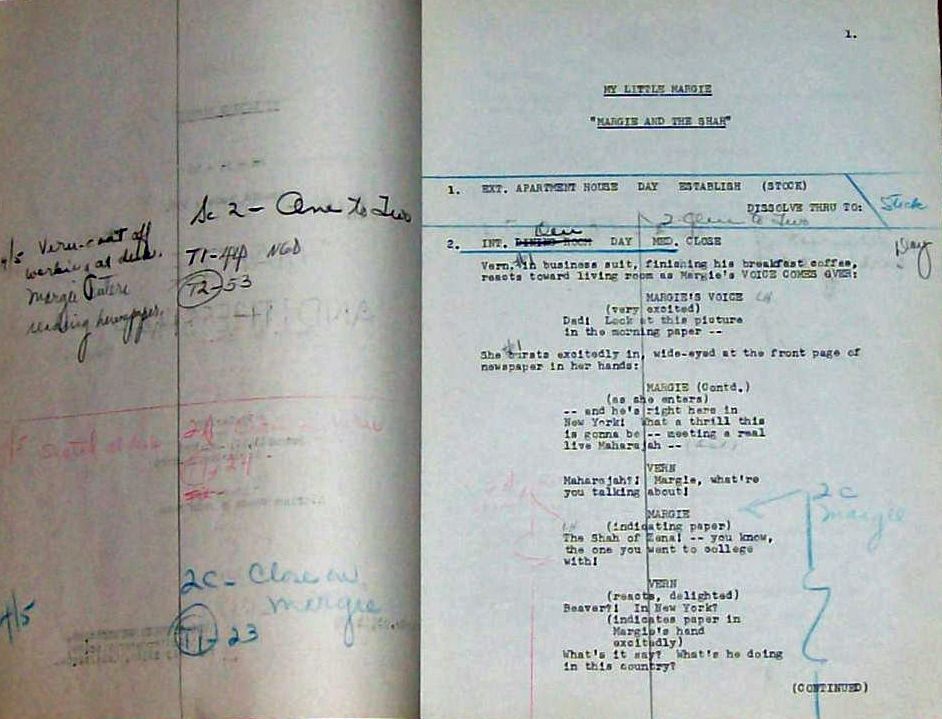 Sc 2 - One to Two
4/5 Vern-coat off
working at desk.
Margie Enters
reading newspaper.
T1-44 NGD
T2-53
4/5 Seated at desk
2C- Close on
Margie
4/5
T1-23
1.
MY LITTLE MARGIE
"MARGIE AND THE SHAH"
1. EXT. APARTMENT HOUSE DAY ESTABLISH (STOCK)
DISSOLVE THRU TO:
Stock
Den
2 One to Two
2. INT. DINING ROOM DAY MED. CLOSE
Day
Vern, in business suit, finishing his breakfast coffee,
reacts toward living room as Margie's VOICE COMES OVER:
MARGIE'S VOICE
(very excited)
Dad! Look at this picture
in the morning paper --
She bursts excitedly in, wide-eyed at the front page of
newspaper in her hands:
MARGIE (Contd.)
(as she enters)
-- and he's right here in
New York! What a thrill this
is gonna be -- meeting a real
live Maharajah --
VERN
Maharajah?! Margie, what're
you talking about!
2C
Margie
MARGIE
(indicating paper)
The Shah of Zena! -- you know,
the one you went to college
with!
VERN
(reacts, delighted)
Beaver?! In New York?
(indicates paper in
Margie's hand
excitedly)
What's it say? What's he doing
in this country?
(CONTINUED)